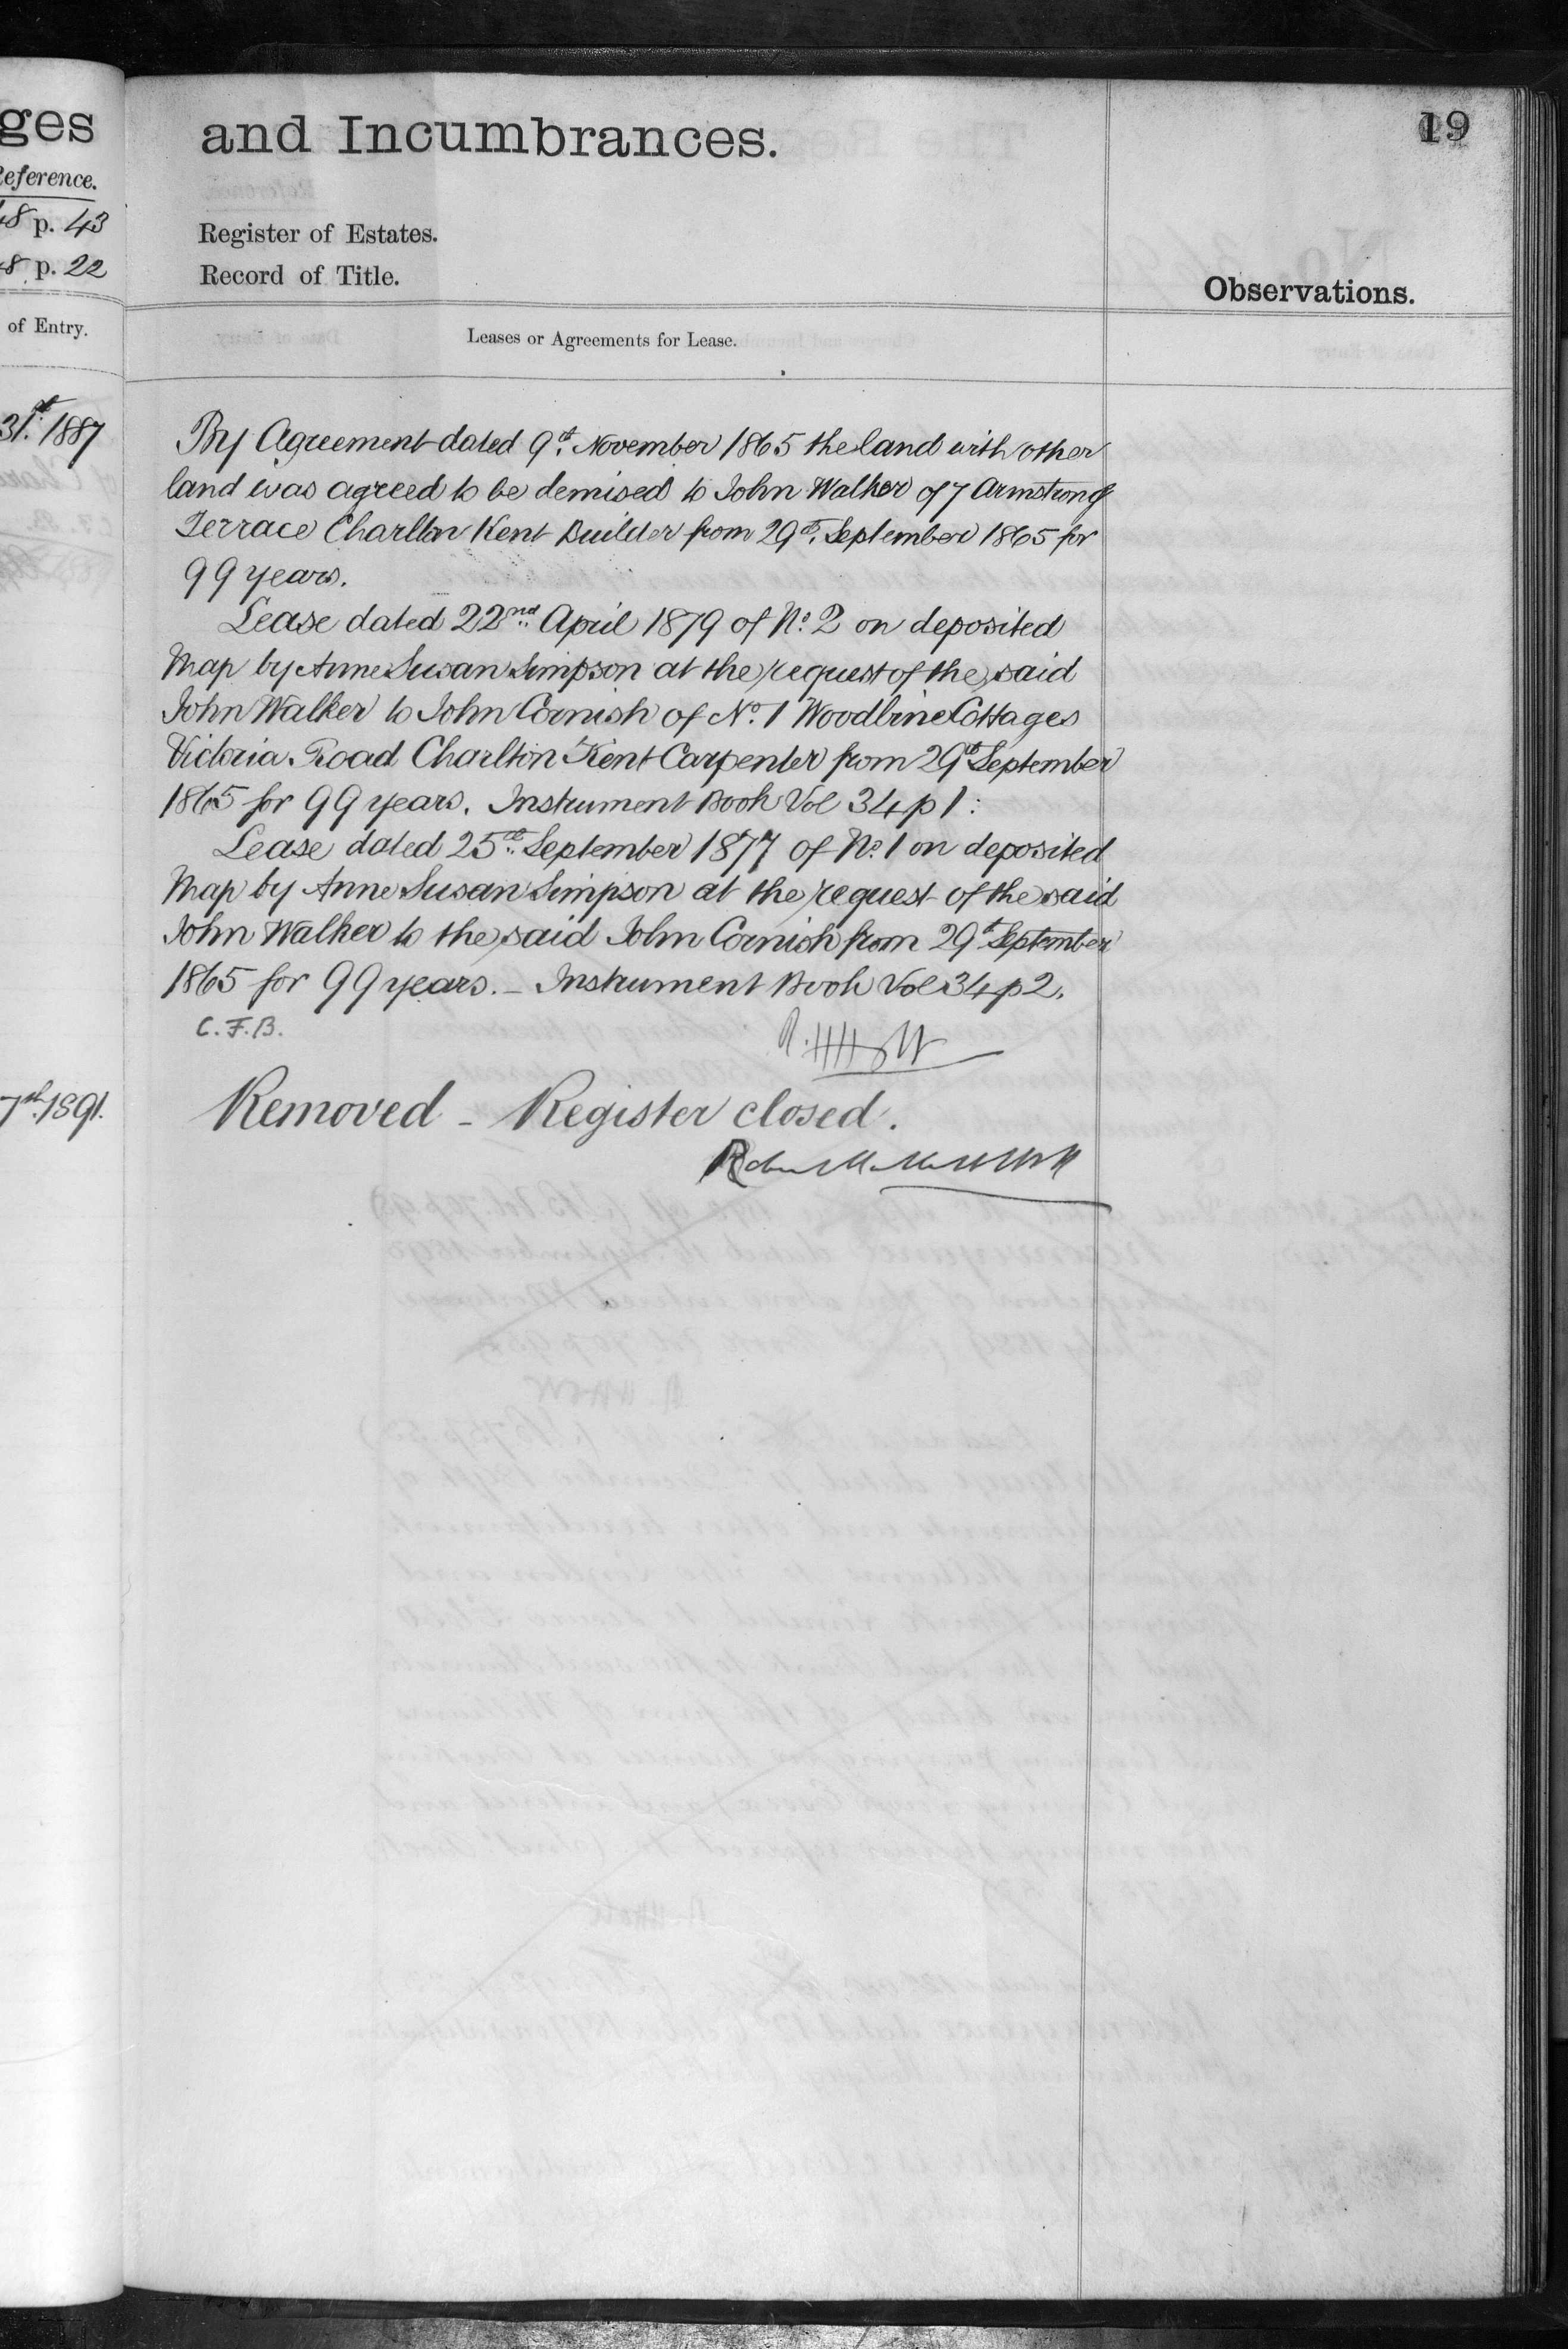 ges
and Incumbrances.
19
Reference.
48 p. 43
Register of Estates.
48 p. 22
Record of Title.
Observations.
of Entry.
Leases or Agreements for Lease.
31st 1887
By Agreement dated 9th November 1865 the land with other
land was agreed to be demised to John Walker of 7 Armstrong
Terrace Charlton Kent Builder from 29th September 1865 for
99 years.
Lease dated 22nd April 1879 of No. 2 on deposited
Map by Anne Susan Simpson at the request of the said
John Walker to John Cornish of No. 1 Woodbine Cottages
Victoria Road Charlton Kent Carpenter from 29th September
1865 for 99 years. Instrument Book Vol 34 p 1:
Lease dated 25th September 1877 of No. 1 on deposited
Map by Anne Susan Simpson at the request of the said
John Walker to the said John Cornish from 29th September
1865 for 99 years. – Instrument Book Vol 34 p 2.
C.F.B.
7th 1891.
Removed – Register closed.